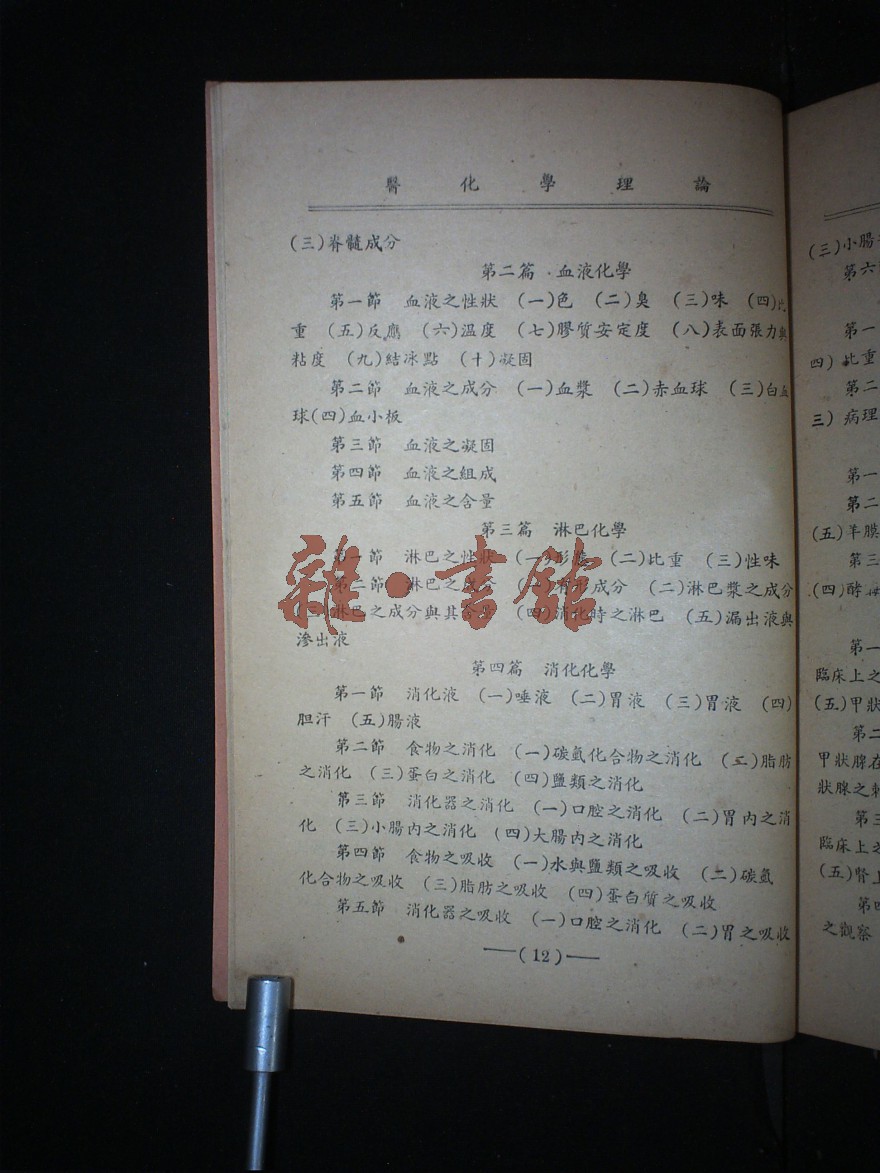 醫化學理論
(三)脊髓成分
第二篇 血液化學
第一節 血液之性狀 (一)色 (二)臭 (三)味 (四)比
重 (五)反應 (六)溫度 (七)膠質安定度 (八)表面張力與
粘度 (九)結冰點 (十)凝固
第二節 血液之成分 (一)血漿 (二)赤血球 (三)白血
球(四)血小板
第三節 血液之凝固
第四節 血液之組成
第五節 血液之含量
第三篇 淋巴化學
第一節 淋巴之性狀 (一)形態 (二)比重 (三)性味
第二節 淋巴之成分 (一)有形成分 (二)淋巴漿之成分
(三)淋巴之成分與其含量 (四)消化時之淋巴 (五)漏出液與
滲出液
第四篇 消化化學
第一節 消化液 (一)唾液 (二)胃液 (三)胃液 (四)
胆汗 (五)腸液
第二節 食物之消化 (一)碳氫化合物之消化 (二)脂肪
之消化 (三)蛋白之消化 (四)鹽類之消化
第三節 消化器之消化 (一)口腔之消化 (二)胃內之消
化 (三)小腸內之消化 (四)大腸內之消化
第四節 食物之吸收 (一)水與鹽類之吸收 (二)碳氫
化合物之吸收 (三)脂肪之吸收 (四)蛋白質之吸收
第五節 消化器之吸收 (一)口腔之消化 (二)胃之吸收
—(12)—
雜·書館
(三)小腸
第六
第一
四)比重
第二
三)病理
第一
第二
(五)羊膜
第三
(四)酵母
第一
臨床上之
(五)甲狀
第二
甲狀脾在
狀腺之刺
第三
臨床上之
(五)腎上
第四
之觀察